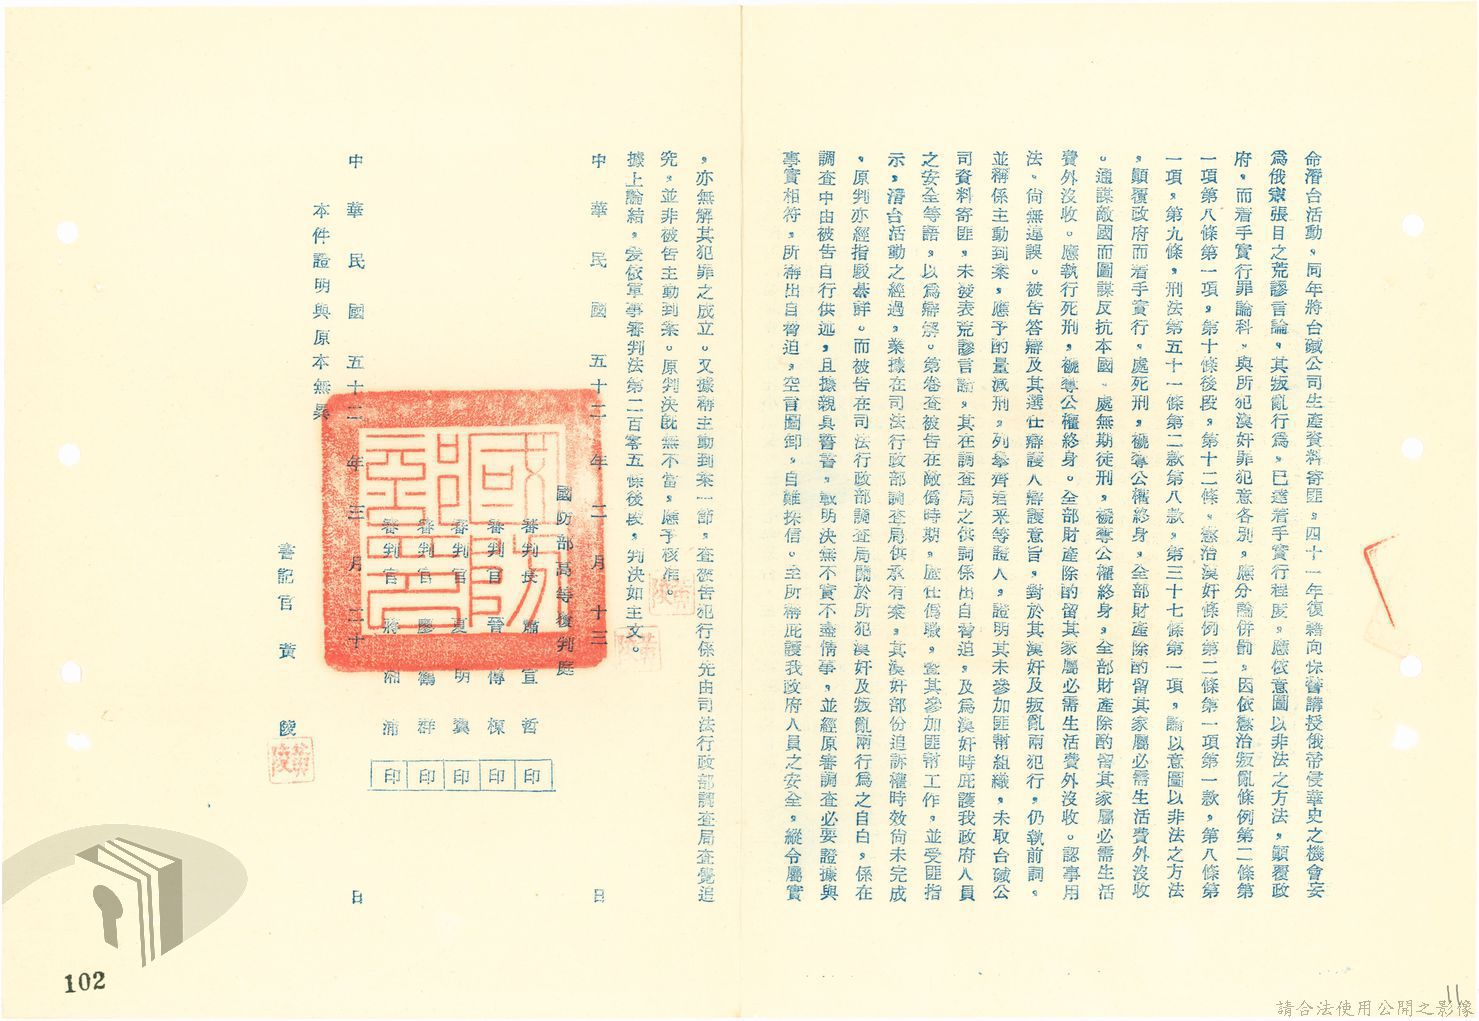 命潛台活動，同年將台碱公司生產資料寄匪，四十一年復藉向保警講授俄帝侵華史之機會妄
為俄寇張目之荒謬言論，其叛亂行為，已達着手實行程度，應依意圖以非法之方法，顛覆政
府，而着手實行罪論科，與所犯漢奸罪犯意各別，應分論併罰，因依懲治叛亂條例第二條第
一項第八條第一項，第十條後段，第十二條，懲治漢奸條例第二條第一項第一款，第八條第
一項，第九條，刑法第五十一條第二款第八款，第三十七條第一項，論以意圖以非法之方法
，顛覆政府而着手實行，處死刑，褫奪公權終身，全部財產除酌留其家屬必需生活費外沒收
。通謀敵國而圖謀反抗本國，處無期徒刑，褫奪公權終身，全部財產除酌留其家屬必需生活
費外沒收。應執行死刑，褫奪公權終身。全部財產除酌留其家屬必需生活費外沒收。認事用
法，尚無違誤。被告答辯及其選任辯護人辯護意旨，對於其漢奸及叛亂兩犯行，仍執前詞。
並稱係主動到案，應予酌量減刑，列舉齊君來等證人，證明其未參加匪幫組織，未取台碱公
司資料寄匪，未發表荒謬言論，其在調查局之供詞係出自脅迫，及為漢奸時庇護我政府人員
之安全等語，以為辯解。第卷查被告在敵偽時期，歷任偽職，查其參加匪幫工作，並受匪指
示，潛台活動之經過，業據在司法行政部調查局供承有案，其漢奸部份追訴權時效尚未完成
，原判亦經指駁綦詳。而被告在司法行政部調查局關於所犯漢奸及叛亂兩行為之自白，係在
調查中由被告自行供述，且據親具誓書，載明決無不實不盡情事，並經原審調查必要證據與
事實相符，所稱出自脅迫，空言圖卸，自難採信。至所稱庇護我政府人員之安全，縱令屬實
，亦無解其犯罪之成立。又據稱主動到案一節，查被告犯行係先由司法行政部調查局查覺追
究，並非被告主動到案。原判決既無不當，應予核准。
據上論結，爰依軍事審判法第二百零五條後段，判決如主文。
中華民國五十二年二月十三日
國防部高等復判庭
審判長蕭宣哲印
審判官晉傳棟印
審判官夏明翼印
審判官廖鶴群印
審判官蔣湘浦印
中華民國五十二年三月二十日
本件證明與原本無異
書記官黃陵
102
11
請合法使用公開之影像